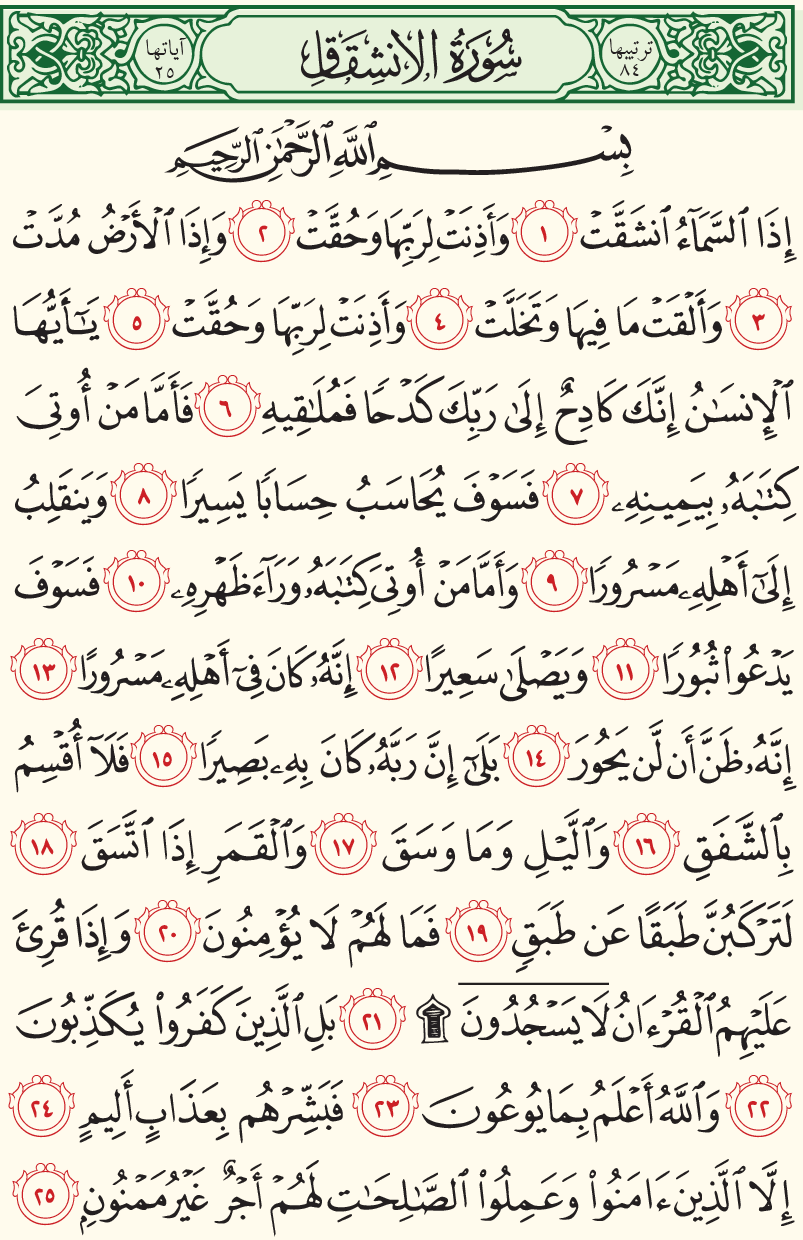 ترتيبها ٨٤ سُورَةُ الِانشِقَاقِ آياتها ٢٥
بِسْمِ اللَّهِ الرَّحْمَٰنِ الرَّحِيمِ
إِذَا ٱلسَّمَآءُ ٱنشَقَّتْ ١ وَأَذِنَتْ لِرَبِّهَا وَحُقَّتْ ٢ وَإِذَا ٱلْأَرْضُ مُدَّتْ
٣ وَأَلْقَتْ مَا فِيهَا وَتَخَلَّتْ ٤ وَأَذِنَتْ لِرَبِّهَا وَحُقَّتْ ٥ يَـٰٓأَيُّهَا
ٱلْإِنسَـٰنُ إِنَّكَ كَادِحٌ إِلَىٰ رَبِّكَ كَدْحًا فَمُلَـٰقِيهِ ٦ فَأَمَّا مَنْ أُوتِىَ
كِتَـٰبَهُۥ بِيَمِينِهِۦ ٧ فَسَوْفَ يُحَاسَبُ حِسَابًا يَسِيرًا ٨ وَيَنقَلِبُ
إِلَىٰٓ أَهْلِهِۦ مَسْرُورًا ٩ وَأَمَّا مَنْ أُوتِىَ كِتَـٰبَهُۥ وَرَآءَ ظَهْرِهِۦ ١٠ فَسَوْفَ
يَدْعُوا۟ ثُبُورًا ١١ وَيَصْلَىٰ سَعِيرًا ١٢ إِنَّهُۥ كَانَ فِىٓ أَهْلِهِۦ مَسْرُورًا ١٣
إِنَّهُۥ ظَنَّ أَن لَّن يَحُورَ ١٤ بَلَىٰٓ إِنَّ رَبَّهُۥ كَانَ بِهِۦ بَصِيرًا ١٥ فَلَآ أُقْسِمُ
بِٱلشَّفَقِ ١٦ وَٱلَّيْلِ وَمَا وَسَقَ ١٧ وَٱلْقَمَرِ إِذَا ٱتَّسَقَ ١٨
لَتَرْكَبُنَّ طَبَقًا عَن طَبَقٍ ١٩ فَمَا لَهُمْ لَا يُؤْمِنُونَ ٢٠ وَإِذَا قُرِئَ
عَلَيْهِمُ ٱلْقُرْءَانُ لَا يَسْجُدُونَ ۩ ٢١ بَلِ ٱلَّذِينَ كَفَرُوا۟ يُكَذِّبُونَ
٢٢ وَٱللَّهُ أَعْلَمُ بِمَا يُوعُونَ ٢٣ فَبَشِّرْهُم بِعَذَابٍ أَلِيمٍ ٢٤
إِلَّا ٱلَّذِينَ ءَامَنُوا۟ وَعَمِلُوا۟ ٱلصَّـٰلِحَـٰتِ لَهُمْ أَجْرٌ غَيْرُ مَمْنُونٍۭ ٢٥